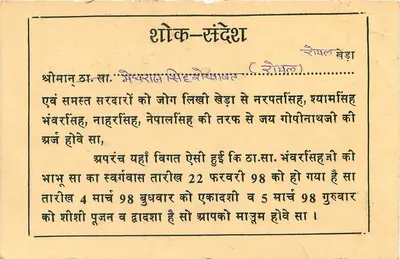 शोक-संदेश
रोयल खेड़ा
श्रीमान् ठा. सा. मेघराज सिंह (रोयल)
एवं समस्त सरदारों को जोग लिखी खेड़ा से नरपतसिंह, श्यामसिंह
भंवरसिंह, नाहरसिंह, नेपालसिंह की तरफ से जय गोपीनाथजी की
अर्ज होवे सा,
अपरंच यहाँ विगत ऐसी हुई कि ठा.सा. भंवरसिंहजी की
भाभू सा का स्वर्गवास तारीख 22 फरवरी 98 को हो गया है सा
तारीख 4 मार्च 98 बुधवार को एकादशी व 5 मार्च 98 गुरुवार
को शीशी पूजन व द्वादशा है सो आपको मालूम होवे सा ।